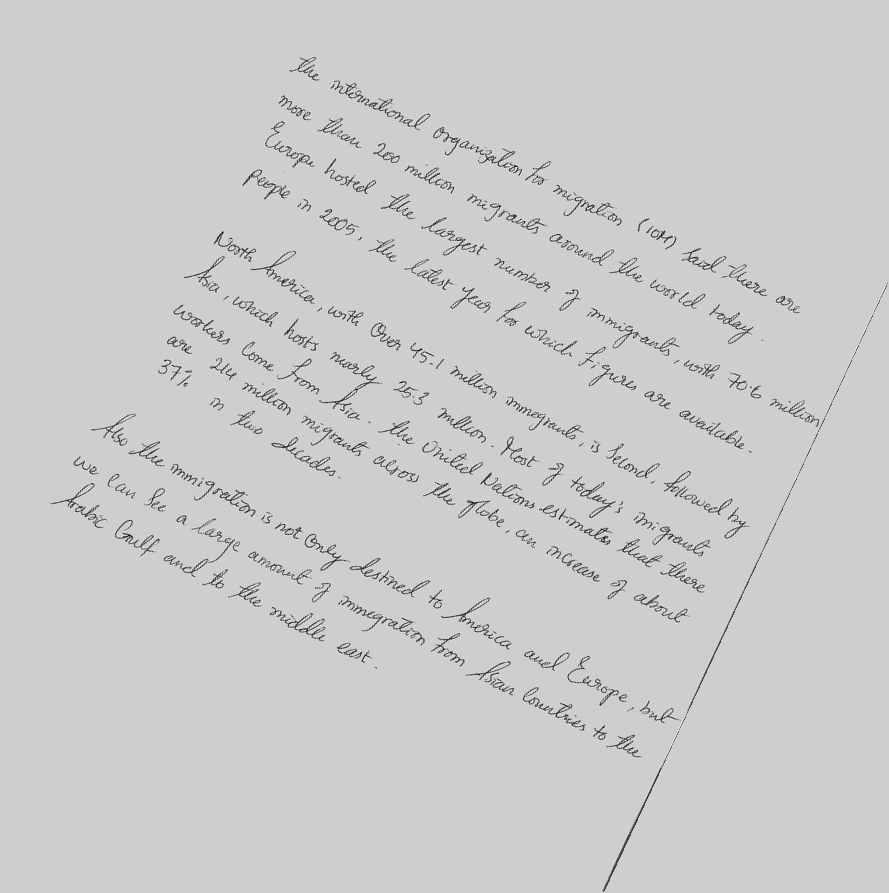 the international organization for migration (IOM) said there are
more than 200 million migrants around the world today.
Europe hosted the largest number of immigrants, with 70.6 million
people in 2005, the latest year for which figures are available.
North America, with over 45.1 million immegrants, is second, followed by
Asia, which hosts nearly 25.3 million. Most of today's imigrants
workers come from Asia. the United Nations estimates that there
are 214 million migrants across the globe, an increase of about
37% in two decades.
Also the immigration is not only destined to America and Europe, but
we can see a large amount of immegration from Asian Countries to the
Arabic Gulf and to the middle east.